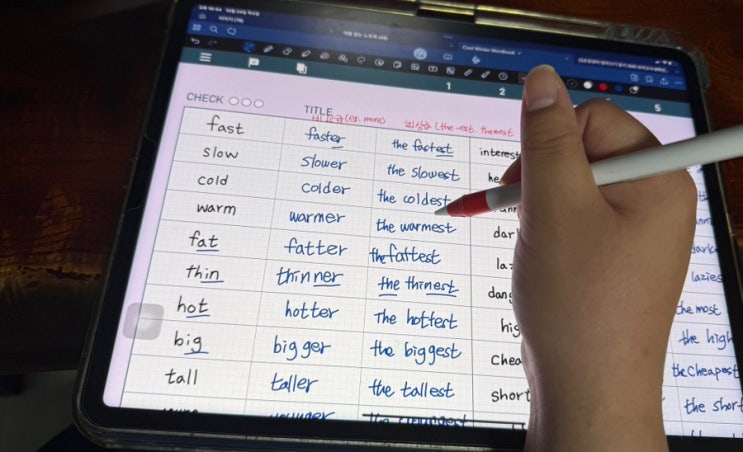 Cool Winter Wordbook
1 2 5
CHECK TITLE
비교급(er, more) 최상급 (the -est, the most
fast faster the fastest interest
slow slower the slowest
cold colder the coldest
warm warmer the warmest dar
fat fatter the fattest la
thin thinner the thinest dang lazies
hot hotter The hottest hig the most
big bigger the biggest Chea the high
tall taller the tallest short the cheapest
younger the short